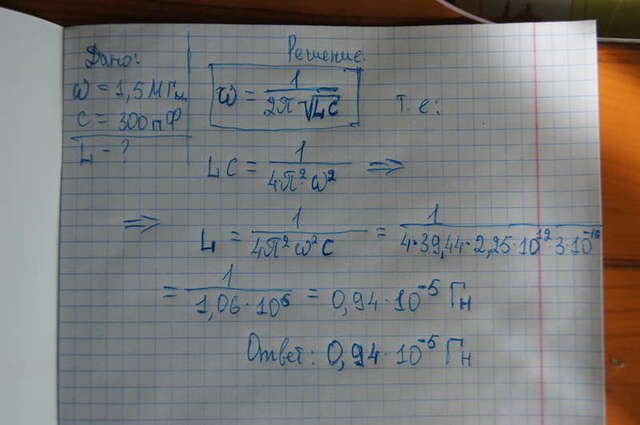 Дано:
ω = 1,5 МГц
C = 300 пФ
L - ?
Решение:
ω = 1 / 2π √LC т.е:
LC = 1 / 4·π²·ω² ⇒
⇒ L = 1 / 4π²ω²C = 1 / 4·39,44·2,25·10¹²·3·10⁻¹⁰
= 1 / 1,06·10⁵ = 0,94·10⁻⁵ Гн
Ответ: 0,94·10⁻⁵ Гн